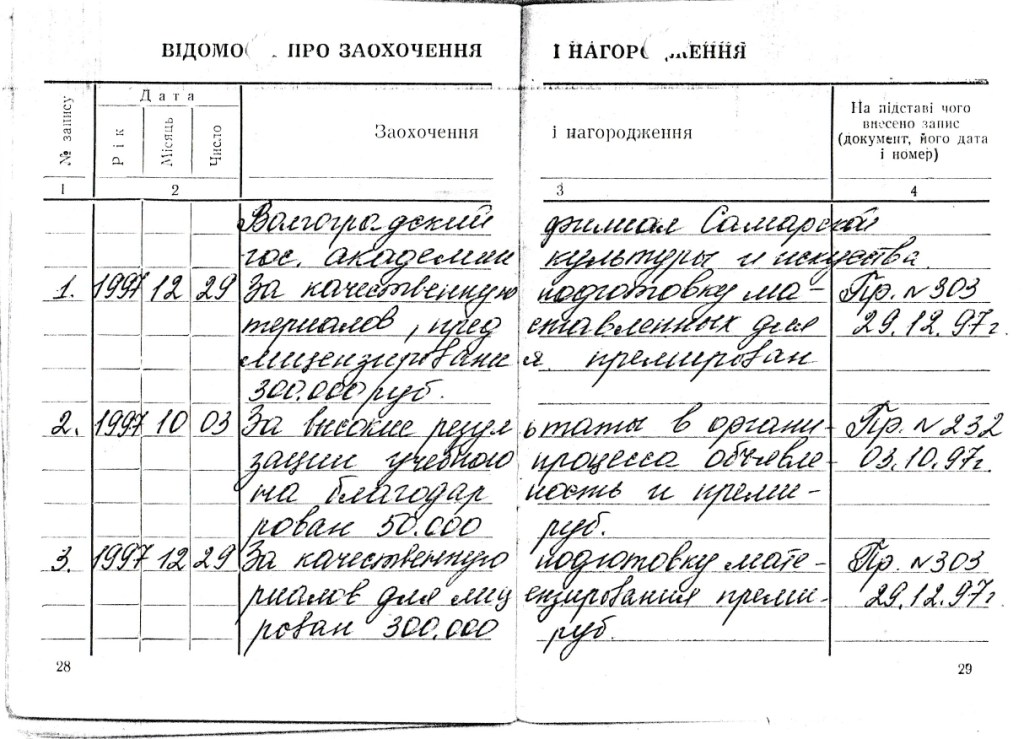 ВІДОМО ПРО ЗАОХОЧЕННЯ І НАГОРО ЖЕННЯ
№ запису Дата Заохочення і нагородження На підставі чого внесено запис (документ, його дата і номер)
Рік Місяць Число
1 2 3 4
Волгоградский филиал Самарской
гос. академии культуры и искуства.
1. 1997 12 29 За качественную подготовку ма- Пр. №303
териалов, пред ставленных для 29.12.97г.
лицензировани я премирован
300.000 руб.
2. 1997 10 03 За высокие резул ьтаты в органи- Пр. №232
зации учебного процесса объявле- 03.10.97г.
на благодар ность и преми-
рован 50.000 руб.
3. 1997 12 29 За качественную подготовку мате- Пр. №303
риалов для лиц ензирования преми- 29.12.97г.
рован 300.000 руб.
28 29